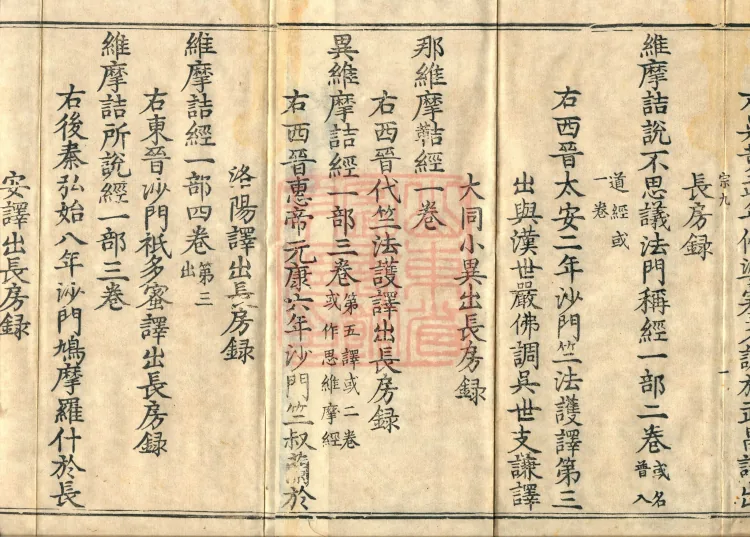 長房録
宗九
維摩詰説不思議法門稱經一部二卷 或名普入
道經或一卷
右西晉太安二年沙門竺法護譯第三
出與漢世嚴佛調吳世支謙譯
大同小異出長房録
那維摩詰經一卷
右西晉代竺法護譯出長房録
異維摩詰經一部三卷 第五譯或二卷或作思維摩經
右西晉惠帝元康六年沙門竺叔蘭於
洛陽譯出長房録
維摩詰經一部四卷 第三出
右東晉沙門祇多蜜譯出長房録
維摩詰所説經一部三卷
右後秦弘始八年沙門鳩摩羅什於長
安譯出長房録